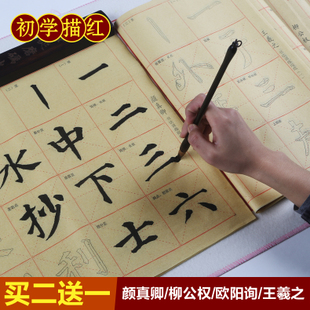 初学描红
一
中 二
水 下 三
抄 士 六
利
买二送一 颜真卿/柳公权/欧阳询/王羲之